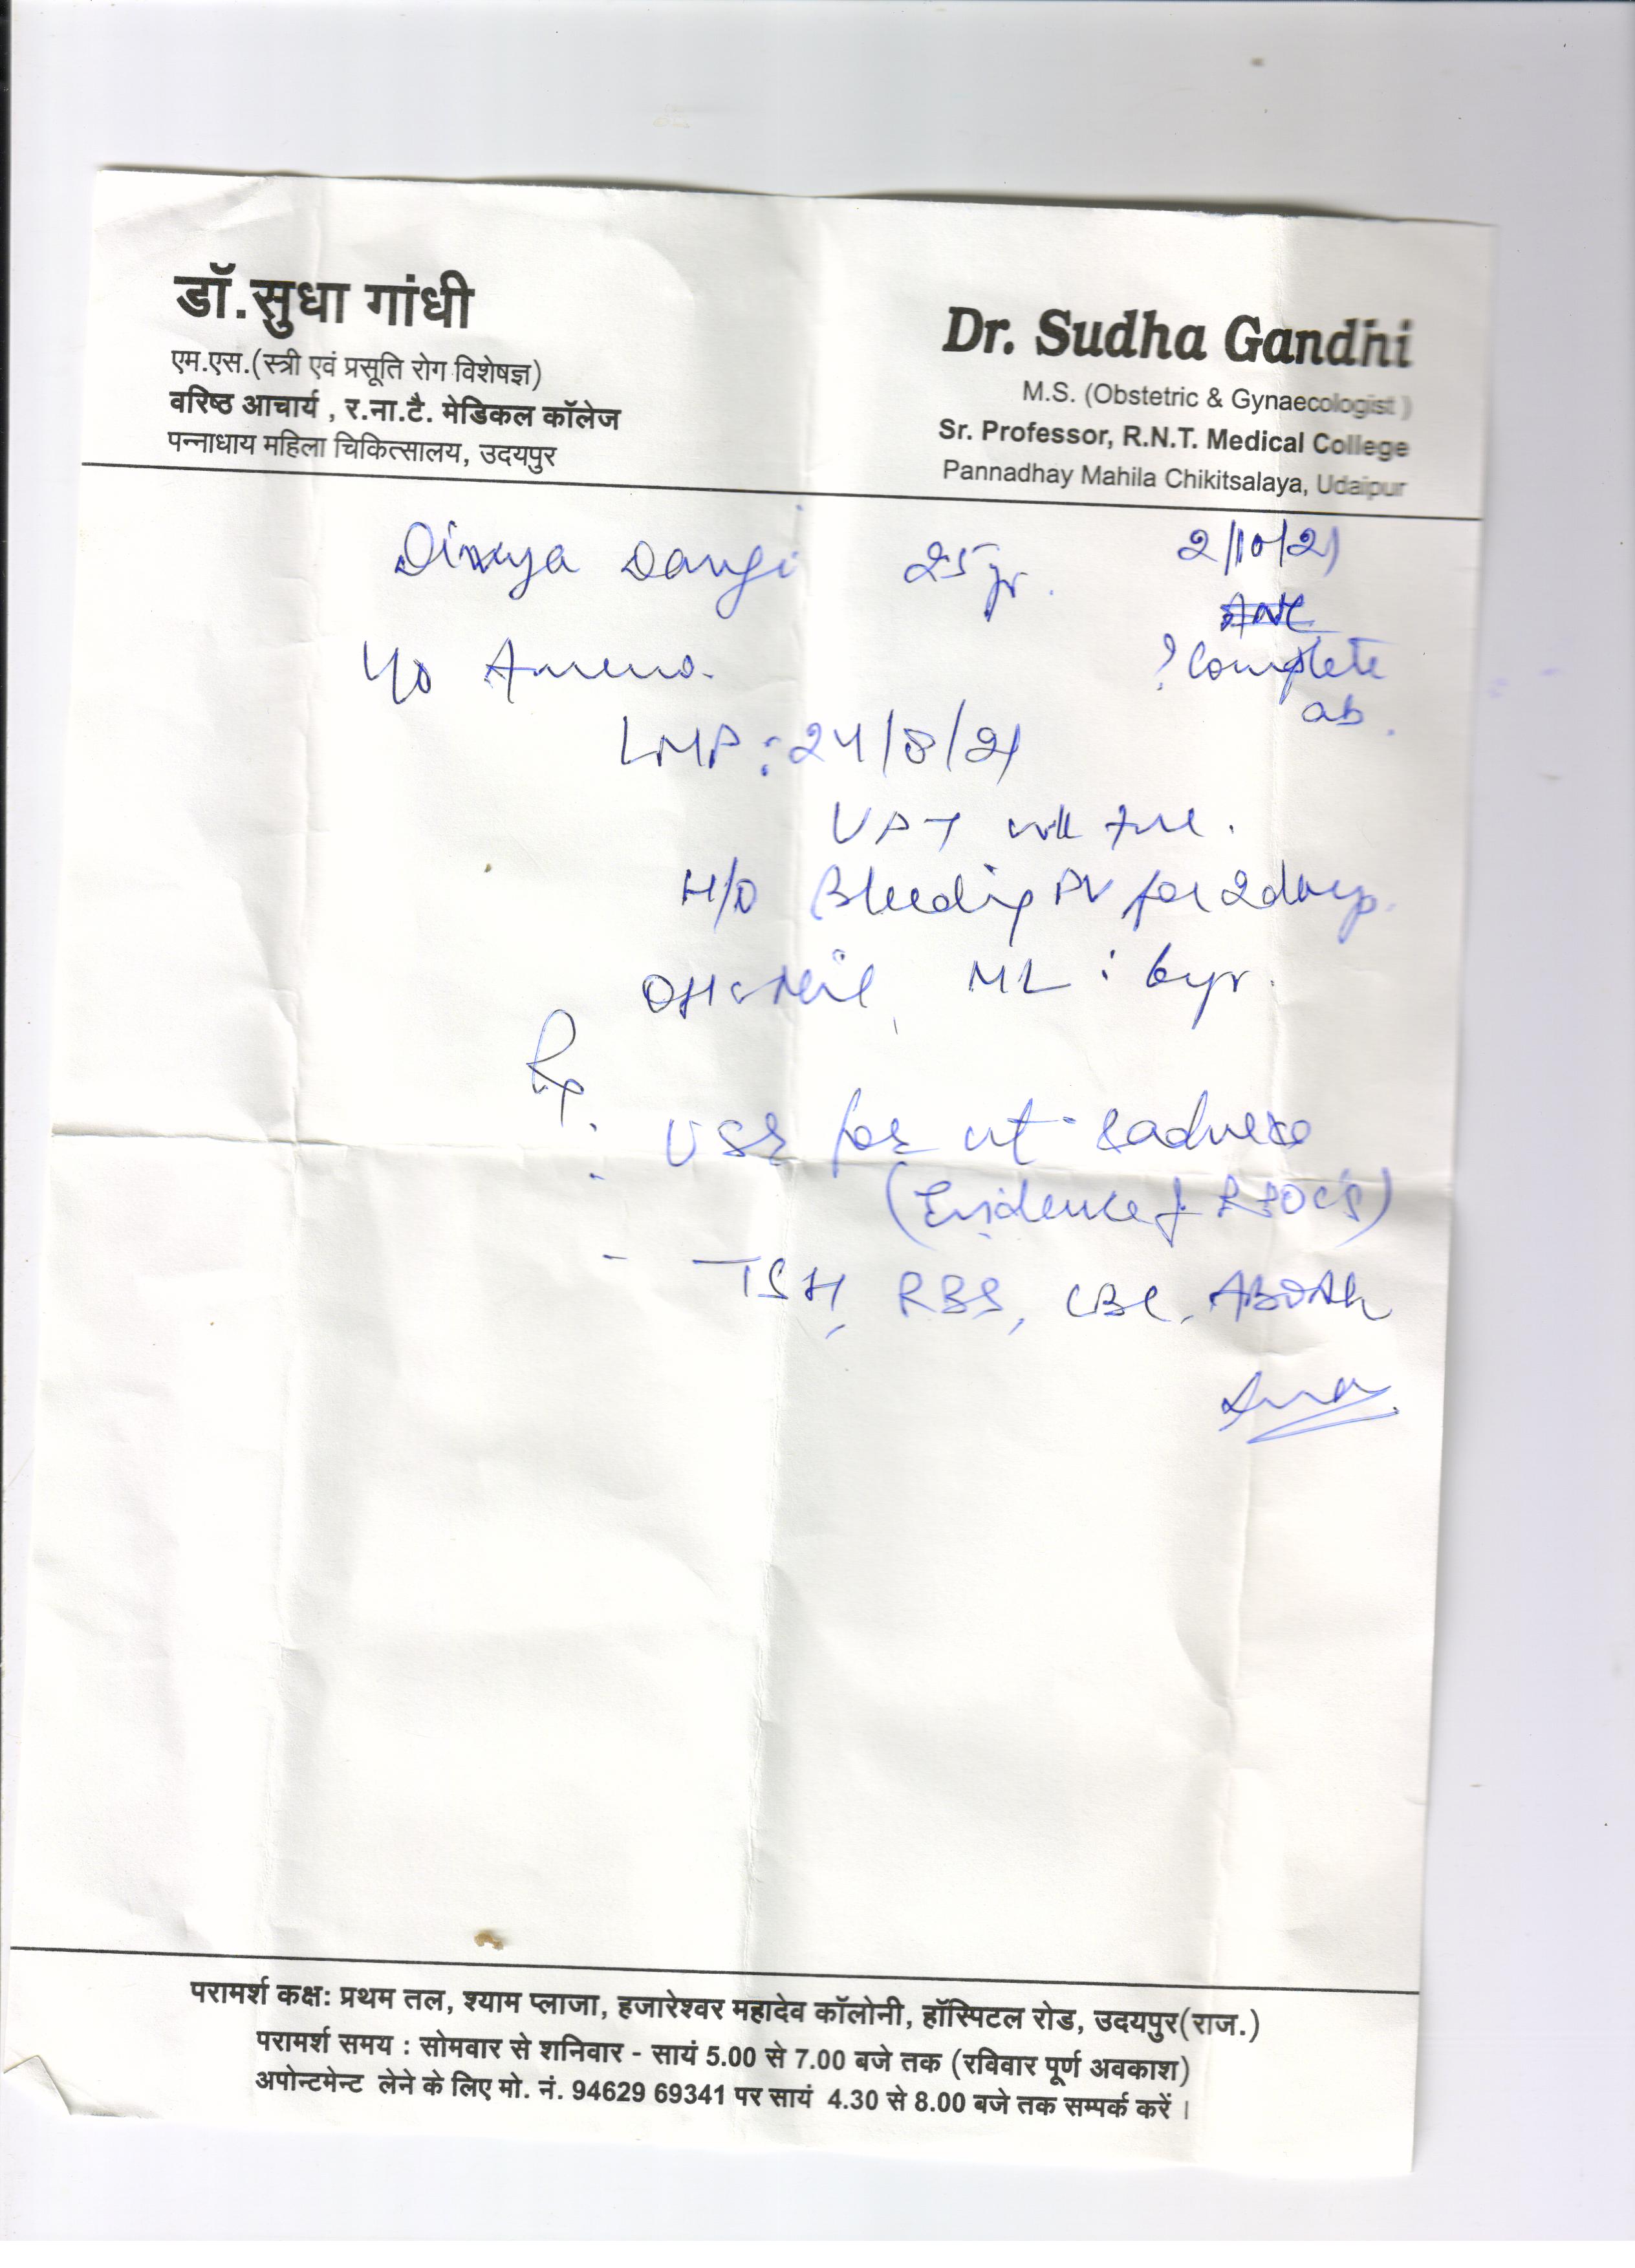 डॉ.सुधा गांधी
एम.एस.(स्त्री एवं प्रसूति रोग विशेषज्ञ)
वरिष्ठ आचार्य , र.ना.टै. मेडिकल कॉलेज
पन्नाधाय महिला चिकित्सालय, उदयपुर
Dr. Sudha Gandhi
M.S. (Obstetric & Gynaecologist )
Sr. Professor, R.N.T. Medical College
Pannadhay Mahila Chikitsalaya, Udaipur
Divya Dangi 25 yr. 2/10/21
ANC
? Complete
ab.
Ameno.
LMP : 24/8/21
UPT
H/O Bleeding PV for 2 days.
OH : Nil ML : 6 yr.
Rp.
- USG for ut. & adnexa
(Evidence of RPOC's)
- TSH, RBS, CBC, ABORh
परामर्श कक्ष: प्रथम तल, श्याम प्लाजा, हजारेश्वर महादेव कॉलोनी, हॉस्पिटल रोड, उदयपुर(राज.)
परामर्श समय : सोमवार से शनिवार - सायं 5.00 से 7.00 बजे तक (रविवार पूर्ण अवकाश)
अपोन्टमेन्ट लेने के लिए मो. नं. 94629 69341 पर सायं 4.30 से 8.00 बजे तक सम्पर्क करें ।